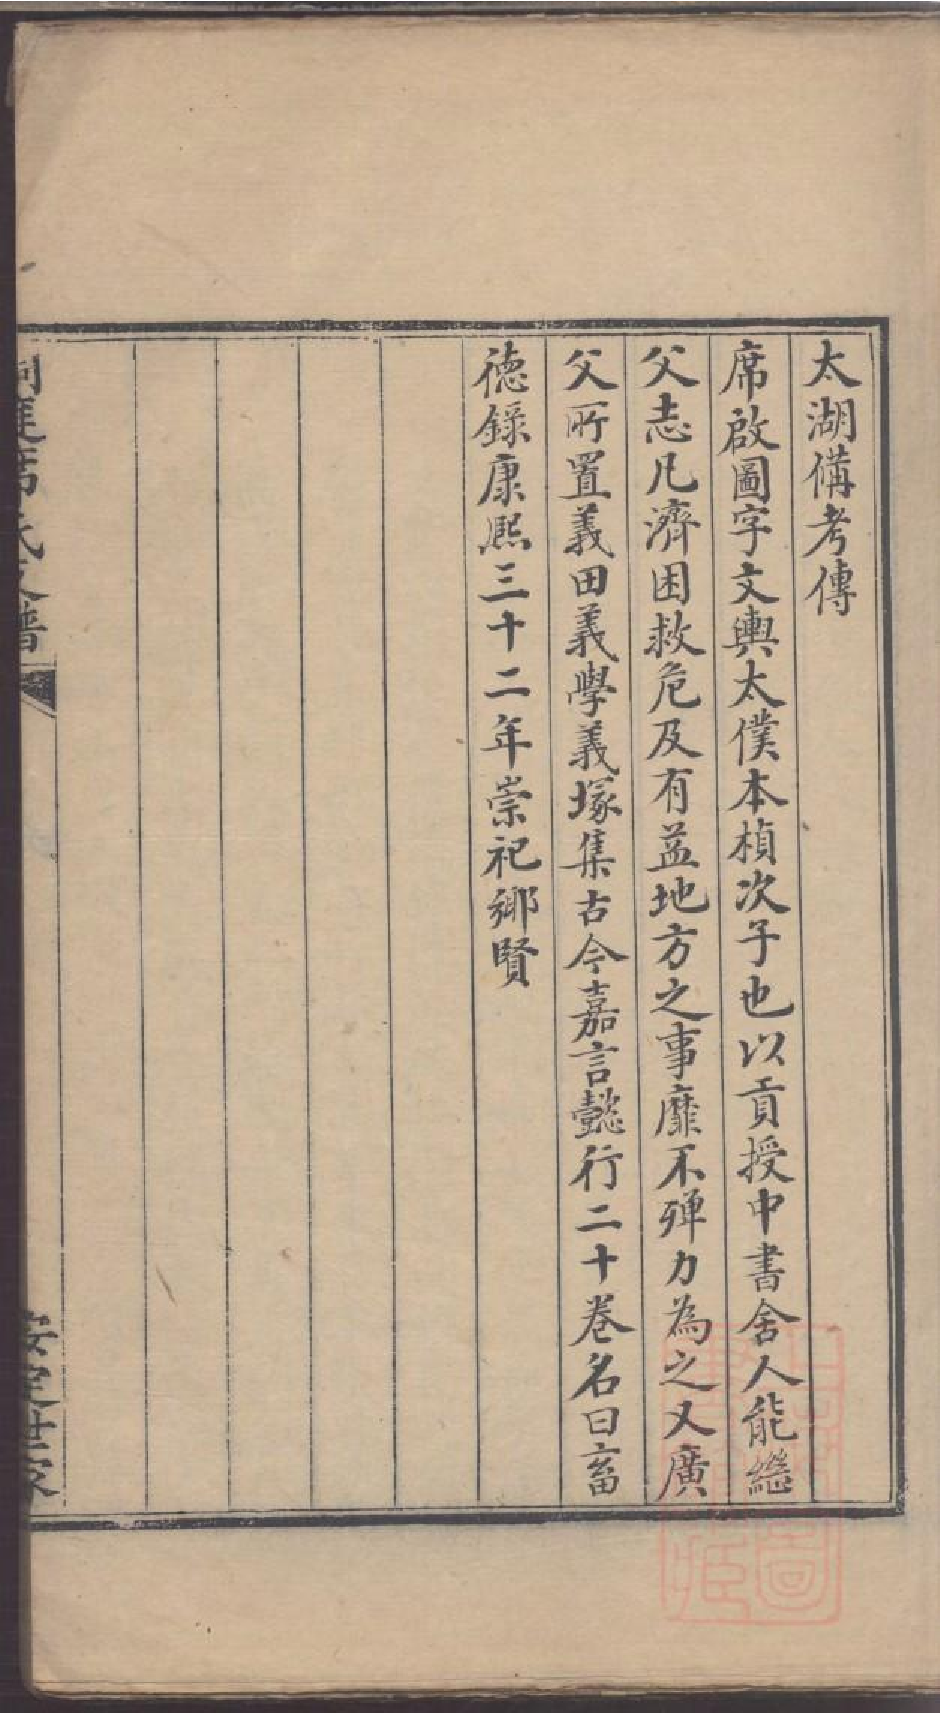 太湖備考傳
席啟圖字文輿太僕本楨次子也以貢授中書舍人能繼
父志凡濟困救危及有益地方之事靡不殫力為之又廣
父所置義田義學義塚集古今嘉言懿行二十卷名曰畜
德錄康熙三十二年崇祀鄉賢
洞庭席氏支譜
安定世家